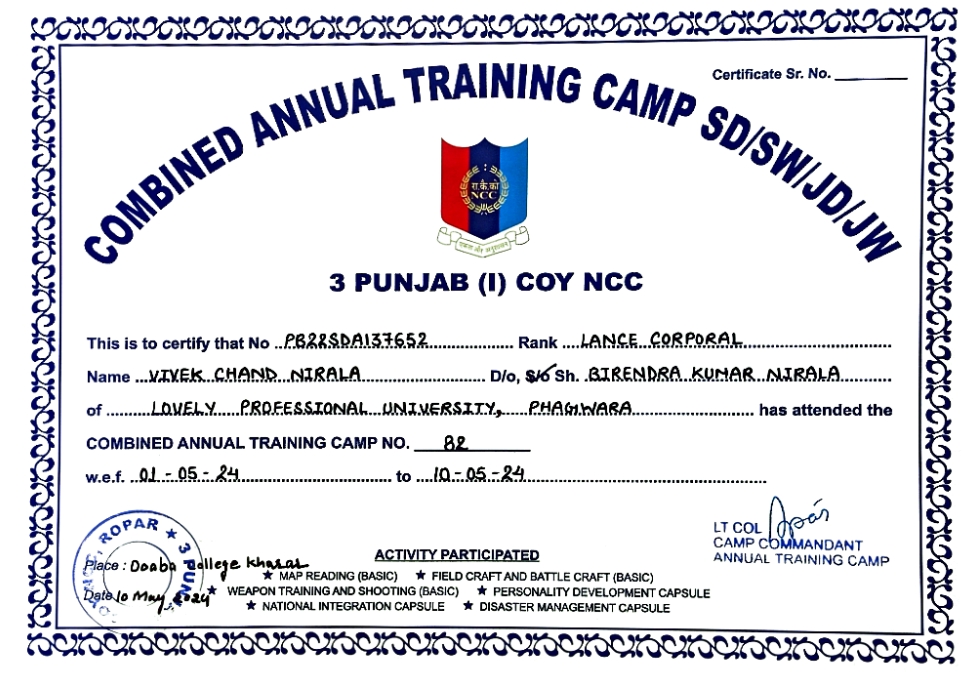 Certificate Sr. No. ________
COMBINED ANNUAL TRAINING CAMP SD/SW/JD/JW
रा.कै.को
NCC
एकता और अनुशासन
3 PUNJAB (I) COY NCC
This is to certify that No PB22SDA137652 Rank LANCE CORPORAL
Name VIVEK CHAND NIRALA D/o, S/o Sh. BIRENDRA KUMAR NIRALA
of LOVELY PROFESSIONAL UNIVERSITY, PHAGWARA has attended the
COMBINED ANNUAL TRAINING CAMP NO. 82
w.e.f. 01-05-24 to 10-05-24
LT COL
CAMP COMMANDANT
ANNUAL TRAINING CAMP
ROPAR ★ 3 PUN
Place : Doaba College Kharar
Date 10 May, 2024
ACTIVITY PARTICIPATED
★ MAP READING (BASIC) ★ FIELD CRAFT AND BATTLE CRAFT (BASIC)
★ WEAPON TRAINING AND SHOOTING (BASIC) ★ PERSONALITY DEVELOPMENT CAPSULE
★ NATIONAL INTEGRATION CAPSULE ★ DISASTER MANAGEMENT CAPSULE